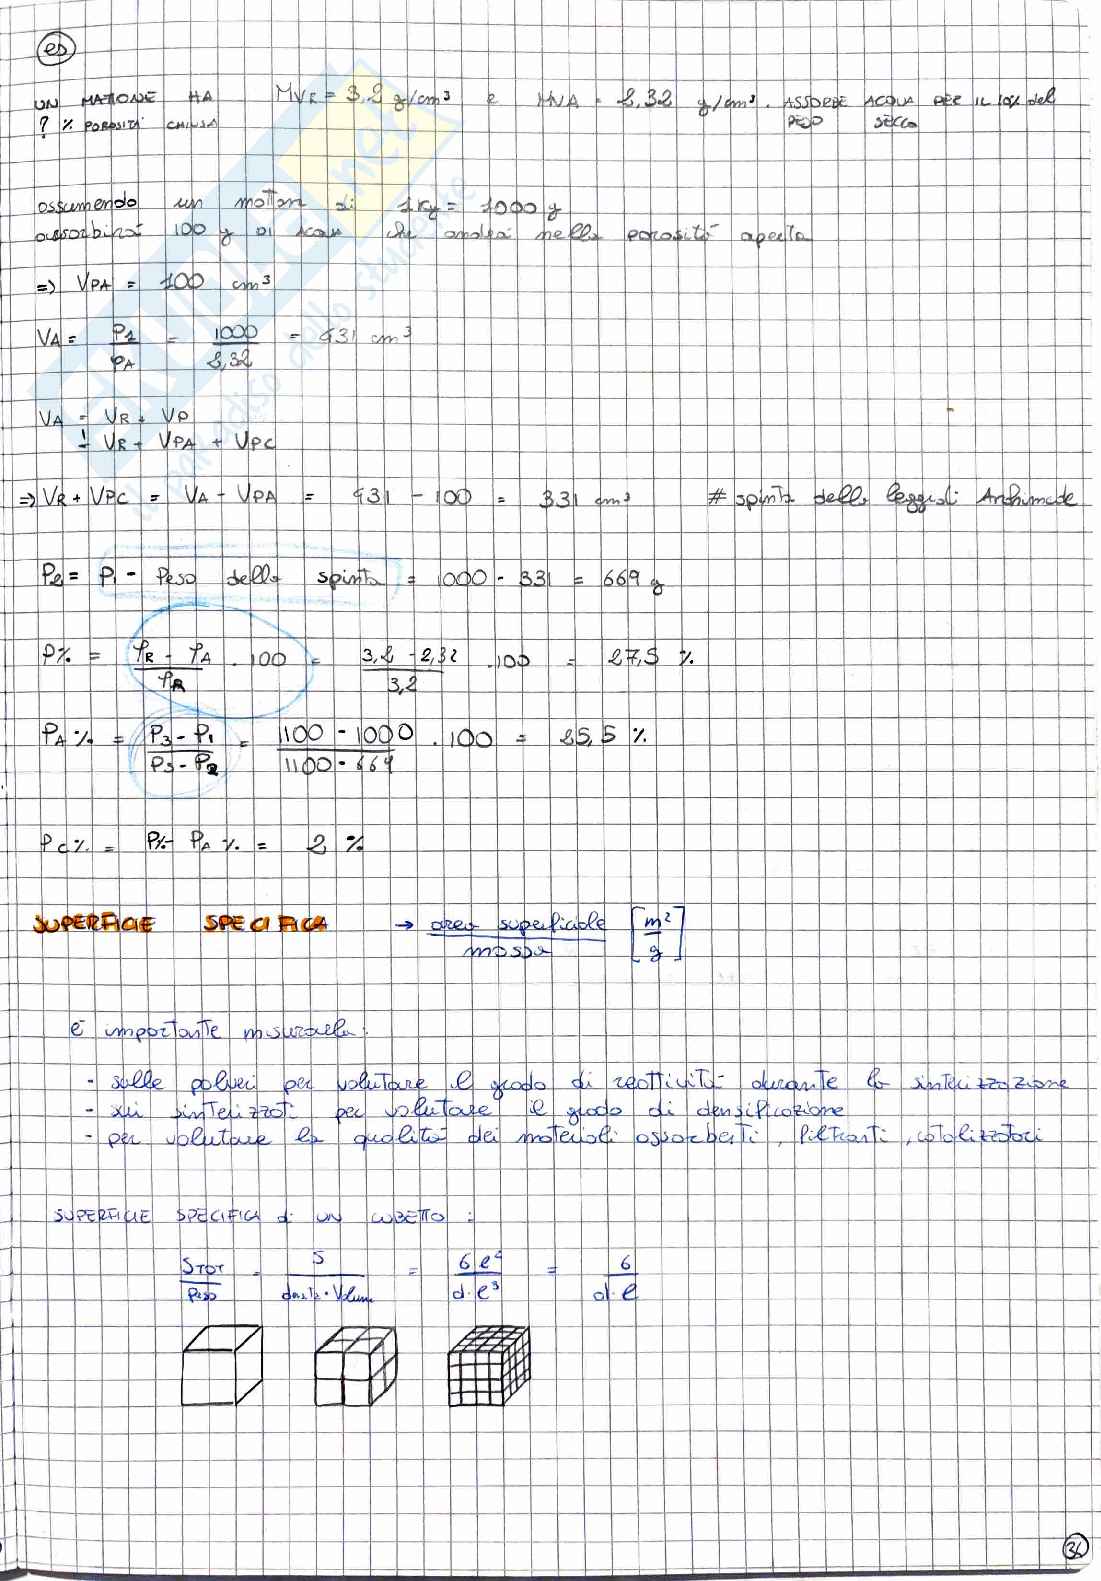 es
UN MATTONE HA MVR = 3,2 g/cm³ e MVA = 2,32 g/cm³. ASSORBE ACQUA PER IL 10% del PESO SECCO
? % POROSITÀ CHIUSA
assumendo un matton di 1kg = 1000 g
assorbirà 100 g di acqua che andrà nella porosità aperta
=> VPA = 100 cm³
VA = P1/ρA = 1000/2,32 = 431 cm³
VA = VR + VP
= VR + VPA + VPC
=> VR + VPC = VA - VPA = 431 - 100 = 331 cm³ # spinta della legge di Archimede
P2 = P1 - Peso della spinta = 1000 - 331 = 669 g
P% = (ρR - ρA)/ρR · 100 = (3,2 - 2,32)/3,2 · 100 = 27,5 %
PA % = (P3 - P1)/(P3 - P2) = (1100 - 1000)/(1100 - 669) · 100 = 25,5 %
PC% = P% - PA % = 2 %
SUPERFICIE SPECIFICA → area superficiale/massa [m²/g]
è importante misurarla:
- sulle polveri per valutare il grado di reattività durante la sinterizzazione
- sui sinterizzati per valutare il grado di densificazione
- per valutare la qualità dei materiali assorbenti, filtranti, catalizzatori
SUPERFICIE SPECIFICA di UN CUBETTO :
STOT/Peso = S/densità · Volume = 6 l²/d · l³ = 6/d · l
36
il paradiso dello studente